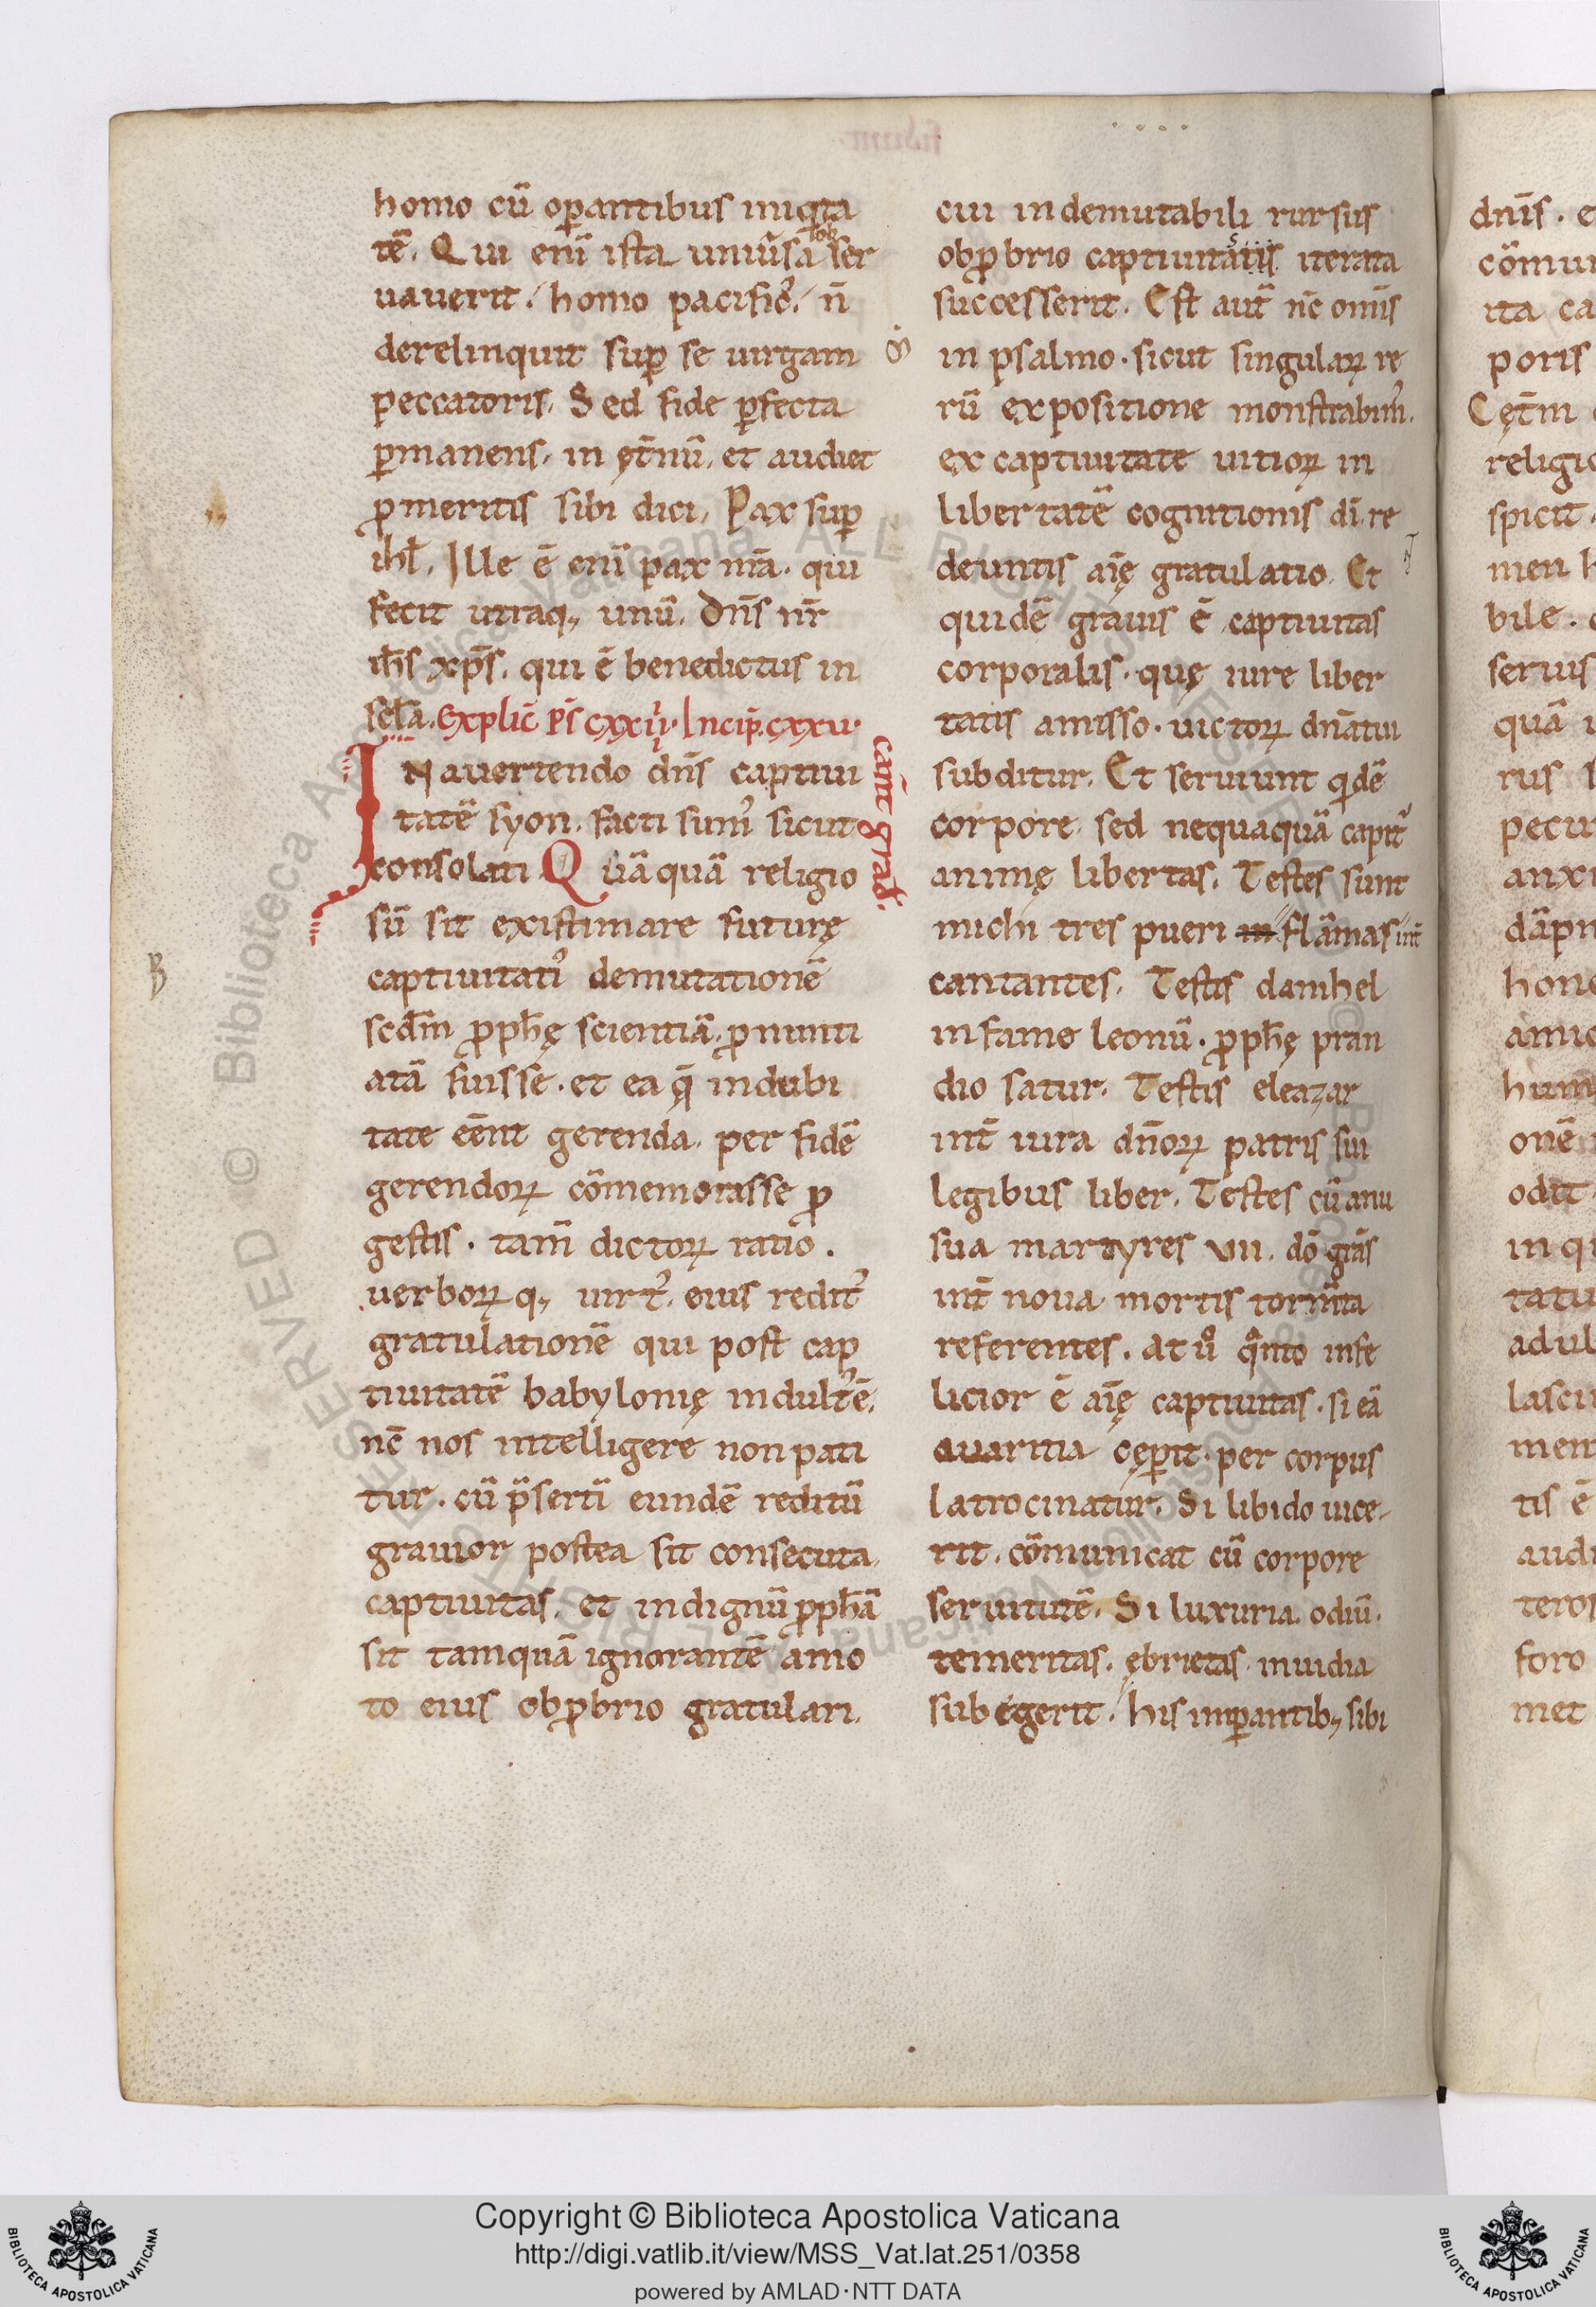 homo cū oꝑantibus iniqͥta
tē. Qui enī ista uniūsa ob ser
uauerit. homo pacific᾽. n̄
derelinquit suꝑ se uirgam
peccatoris. Sed fide ꝑfecta
ꝑmanens. in ęt̄nū. et audiet
ꝓ meritis sibi dici. Pax suꝑ
ihl̄. Ille ē enī pax nr̄a. qui
fecit utraq; unū. Dn̄s nr̄
ih̄s xp̄s. qui ē benedictus in
scl̄a. Explic̄ ps̄ cxxiiij. Incip̄. cxxv.
cant̄ grad̄.
In auertendo dn̄s captiui
tatē syon. facti sum᾽ sicut
consolati Quāquā religio
sū sit existimare futurę
captiuitati᾽ demutationē
scdm̄ ꝓph̄ę scientiā. ꝓnunti
atā fuisse. et ea q̄ indubi
tate ēent gerenda. per fidē
gerendoꝝ cōmemorasse ꝓ
gestis. tam̄ dictoꝝ ratio.
uerboꝝ q; uirt᾽. eius redit᾽
gratulationē qui post cap
tiuitatē babylonię indult᾽ ē.
nc̄ nos intelligere non pati
tur. cū p̄sertī eundē reditū
grauior postea sit consecuta
captiuitas. et indignū ꝓph̄ā
sit tamquā ignorantē amo
to eius obꝓbrio gratulari.
cui indemutabili rursus
obꝓbrio captiuitatis iterata
successerit. Est aut̄ nc̄ omīs
in psalmo. sicut singulaꝝ re
rū expositione monstrabim᾽.
ex captiuitate uitioꝝ in
libertatē cognitionis dī. re
deuntis aīę gratulatio. Et
quidē grauis ē captiuitas
corporalis. quę iure liber
tatis amisso. uictoꝝ dn̄atui
subditur. Et seruiunt qͥdē
corpore. sed nequaquā capit᾽
animę libertas. Testes sunt
michi tres pueri in flāmas int̄
cantantes. Testis danihel
in fame leonū. ꝓph̄ę pran
dio satur. Testis eleazar
int̄ iura dn̄oꝝ patris sui
legibus liber. Testes cū anu
sua martyres vii. dō grās
int̄ noua mortis torm̄ta
referentes. At uͦ qͣnto infe
licior ē aīę captiuitas. si eā
auaritia cęꝑit. per corpus
latrocinatur. Si libido uice-
rit. cōmunicat cū corpore
seruitutē. Si luxuria. odiū.
temeritas. ębrietas. inuidia
subegerit. his inꝑantib; sibi
Copyright © Biblioteca Apostolica Vaticana
http://digi.vatlib.it/view/MSS_Vat.lat.251/0358
powered by AMLAD·NTT DATA